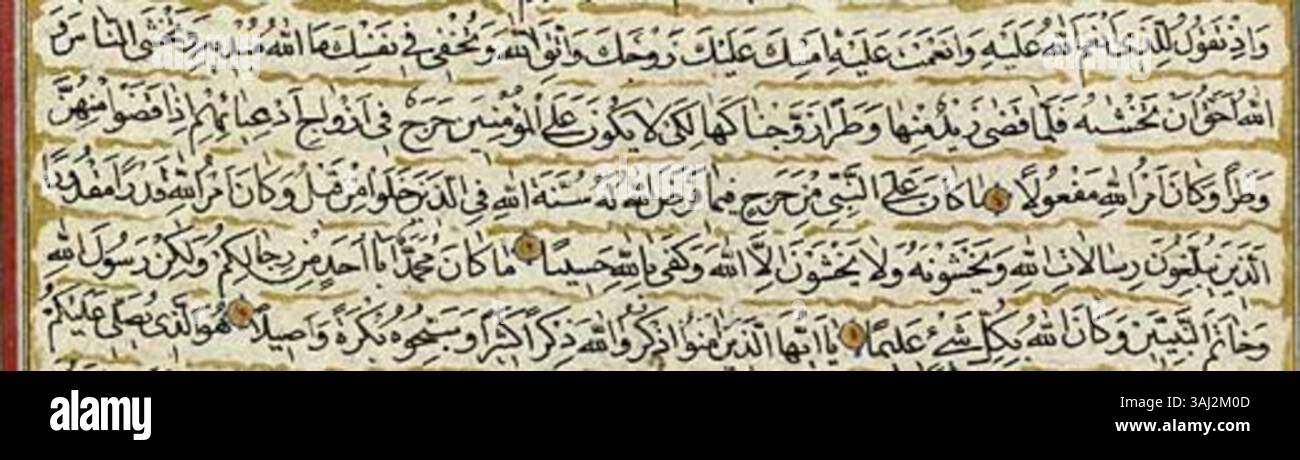 وَاِذْ تَقُولُ لِلَّذِى اَنْعَمَ اللهُ عَلَيْهِ وَاَنْعَمْتَ عَلَيْهِ اَمْسِكْ عَلَيْكَ زَوْجَكَ وَاتَّقِ اللهَ وَتُخْفِى فِى نَفْسِكَ مَا اللهُ مُبْدِيهِ وَتَخْشَى النَّاسَ وَ
اللهُ اَحَقُّ اَنْ تَخْشٰيهُ فَلَمَّا قَضٰى زَيْدٌ مِنْهَا وَطَرًا زَوَّجْنَاكَهَا لِكَىْ لَا يَكُونَ عَلَى الْمُؤْمِنِينَ حَرَجٌ فِى اَزْوَاجِ اَدْعِيَائِهِمْ اِذَا قَضَوْا مِنْهُنَّ
وَطَرًا وَكَانَ اَمْرُ اللهِ مَفْعُولًا مَا كَانَ عَلَى النَّبِىِّ مِنْ حَرَجٍ فِيمَا فَرَضَ اللهُ لَهُ سُنَّةَ اللهِ فِى الَّذِينَ خَلَوْا مِنْ قَبْلُ وَكَانَ اَمْرُ اللهِ قَدَرًا مَقْدُورًا
اَلَّذِينَ يُبَلِّغُونَ رِسَالَاتِ اللهِ وَيَخْشَوْنَهُ وَلَا يَخْشَوْنَ اِلَّا اللهَ وَكَفٰى بِاللهِ حَسِيبًا مَا كَانَ مُحَمَّدٌ اَبَا اَحَدٍ مِنْ رِجَالِكُمْ وَلٰكِنْ رَسُولَ اللهِ
وَخَاتَمَ النَّبِيِّينَ وَكَانَ اللهُ بِكُلِّ شَىْءٍ عَلِيمًا يَا اَيُّهَا الَّذِينَ اٰمَنُوا اذْكُرُوا اللهَ ذِكْرًا كَثِيرًا وَسَبِّحُوهُ بُكْرَةً وَاَصِيلًا هُوَ الَّذِى يُصَلِّى عَلَيْكُمْ
alamy
Image ID: 3AJ2M0D
www.alamy.com